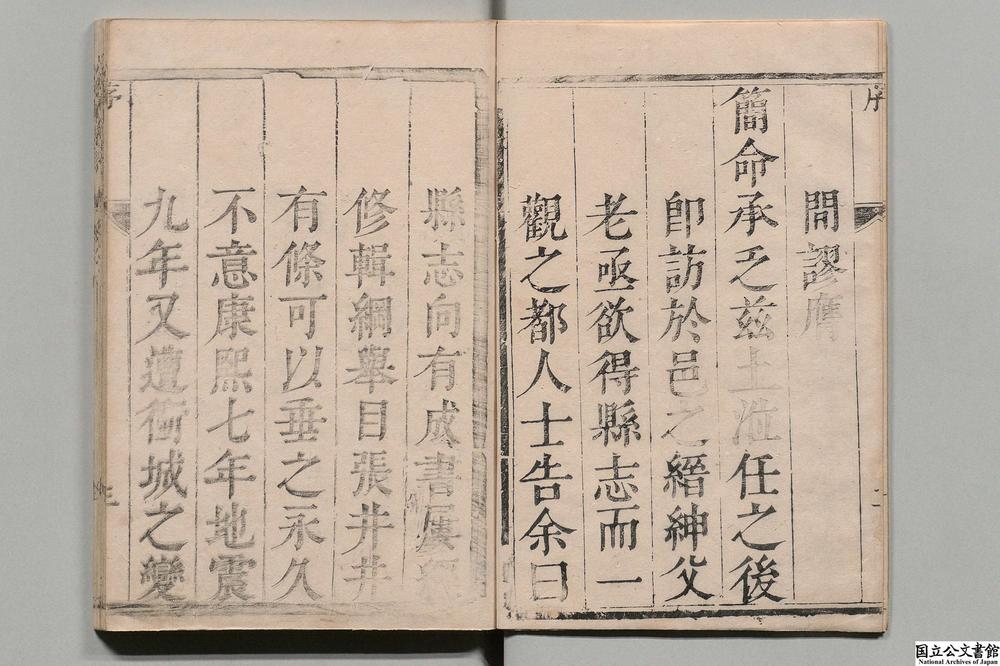 序
間謬膺
簡命承乏茲土涖任之後
即訪於邑之縉紳父
老亟欲得縣志而一
觀之都人士告余曰
二
縣志向有成書屢經
修輯綱舉目張井井
有條可以垂之永久
不意康熙七年地震
九年又遭衝城之變
序
三
国立公文書館
National Archives of Japan